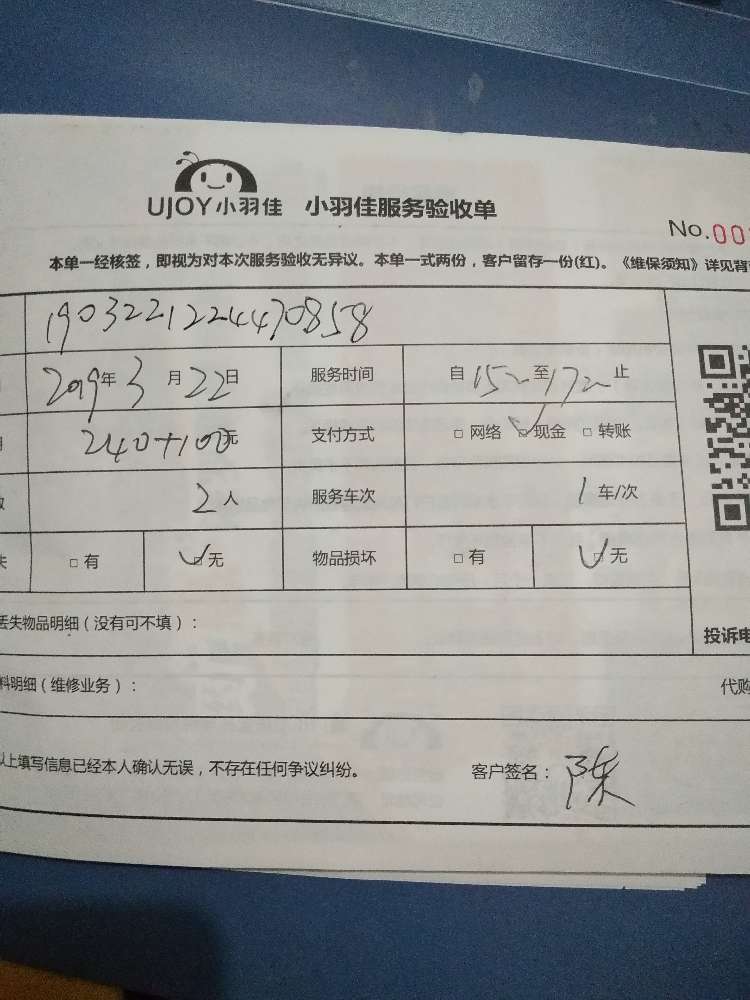 UJOY小羽佳 小羽佳服务验收单
No.00
本单一经核签，即视为对本次服务验收无异议。本单一式两份，客户留存一份(红)。《维保须知》详见背
1903221224470858
2019年3月22日 服务时间 自15~至17~止
240+100元 支付方式 □网络 ☑现金 □转账
2人 服务车次 1车/次
□有 ☑无 物品损坏 □有 ☑无
丢失物品明细（没有可不填）：
投诉电
料明细（维修业务）： 代购
以上填写信息已经本人确认无误，不存在任何争议纠纷。 客户签名：陈